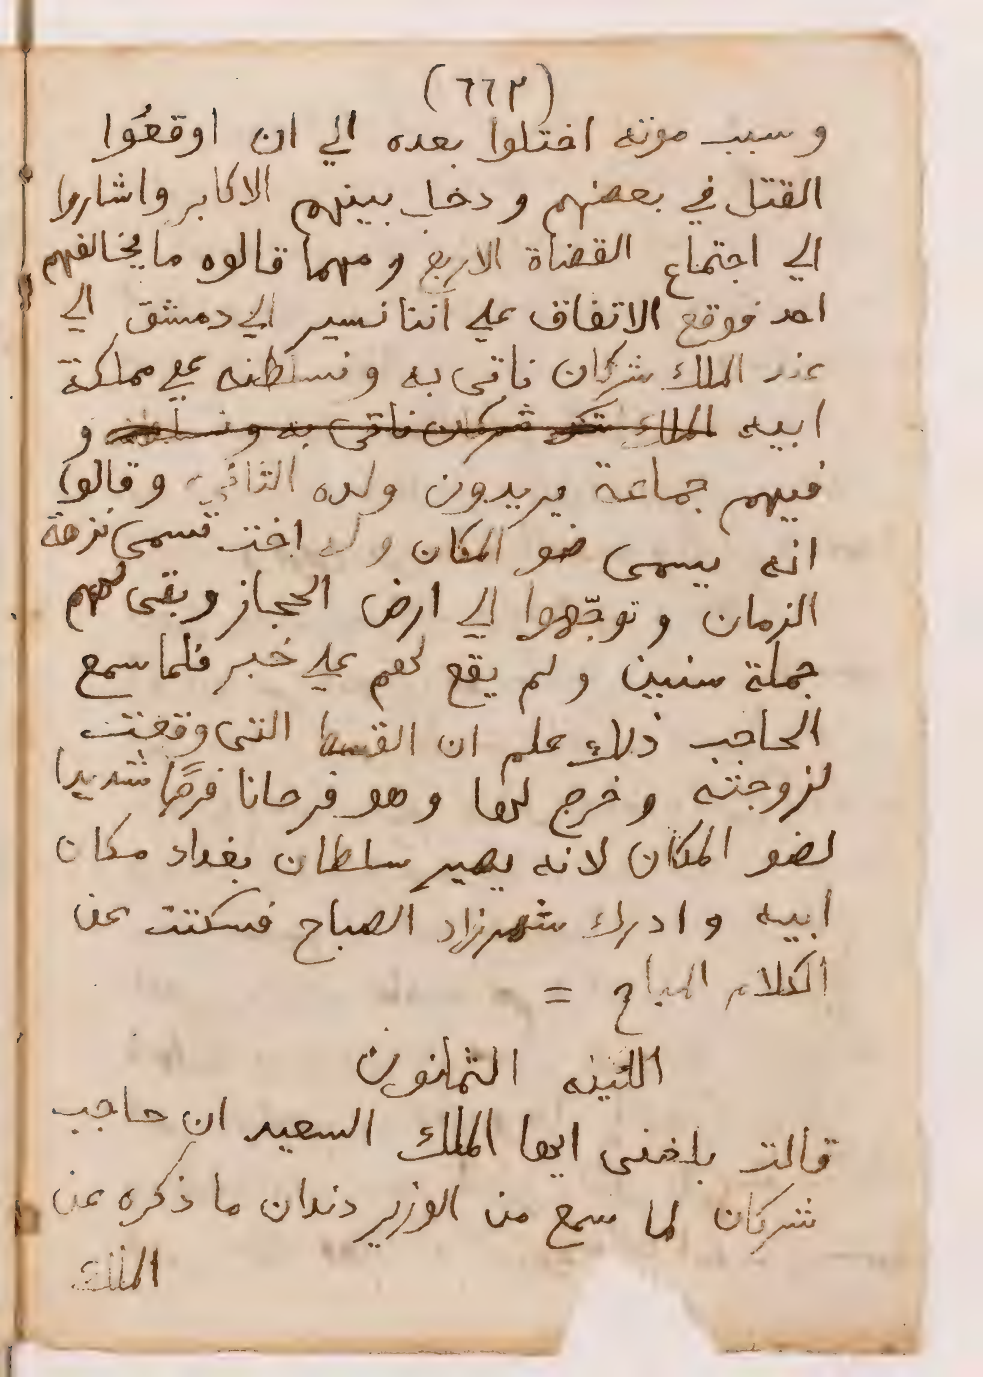 (٦٦٢)
وسبب موته اختلوا بعده الي ان اوقعُوا
القتل في بعضهم ودخل بينهم الاكابر واشاروا
الي اجتماع القضاة الاربع ومهما قالوه ما يخالفهم
احد فوقع الاتفاق علي اننا نسير الي دمشق الي
عند الملك شركان ناتى به ونسلطنه علي مملكة
ابيه الملك شركان ناتى به ونسلطنه و
فيهم جماعة يريدون ولده الثاني وقالوا
انه يسمى ضو المكان وله اخت تسمى نزهة
الزمان وتوجّهوا الي ارض الحجاز وبقى لهم
جملة سنين ولم يقع لهم علي خبر فلما سمع
الحاجب ذلك علم ان القصه التى وقعت
لزوجته وخرج لها وهو فرحانا فرحًا شديدا
لضو المكان لانه يصير سلطان بغداد مكان
ابيه وادرك شهرزاد الصباح فسكتت عن
الكلام المباح =
الليله الثمانون
قالت بلغنى ايها الملك السعيد ان حاجب
شركان لما سمع من الوزير دندان ما ذكره عن
الملك